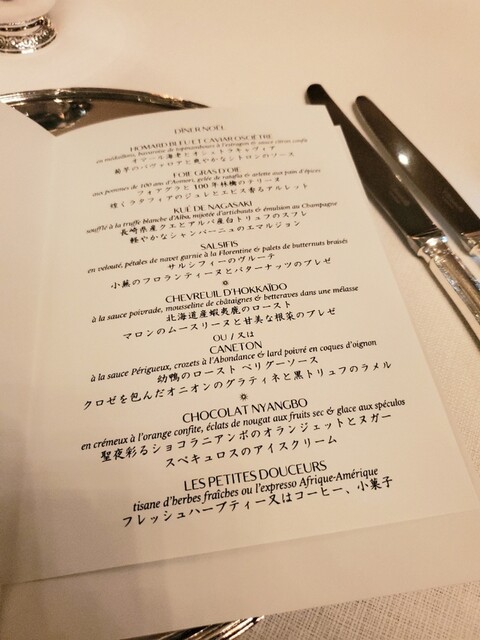 DÎNER NOËL
HOMARD BLEU ET CAVIAR OSCIÈTRE
en médaillons, bavaroise de topinambours à l'estragon & sauce citron confit
オマール海老とオシェトラキャヴィア
菊芋のバヴァロアと爽やかなシトロンのソース
FOIE GRAS D'OIE
aux pommes de 100 ans d'Aomori, gelée de ratafia & arlette aux pain d'épices
フォアグラと100年林檎のテリーヌ
煌くラタフィアのジュレとエピス香るアルレット
KUÉ DE NAGASAKI
soufflé à la truffe blanche d'Alba, mijotée d'artichauts & émulsion au Champagne
長崎県産クエとアルバ産白トリュフのスフレ
軽やかなシャンパーニュのエマルジョン
SALSIFIS
en velouté, pétales de navet garnie à la Florentine & palets de butternuts braisés
サルシフィーのヴルーテ
小蕪のフロランティーヌとバターナッツのブレゼ
CHEVREUIL D'HOKKAÏDO
à la sauce poivrade, mousseline de châtaignes & betteraves dans une mélasse
北海道産蝦夷鹿のロースト
マロンのムースリーヌと甘美な根菜のブレゼ
OU / 又は
CANETON
à la sauce Périgueux, crozets à l'Abondance & lard poivré en coques d'oignon
幼鴨のロースト ペリグーソース
クロゼを包んだオニオンのグラティネと黒トリュフのラメル
CHOCOLAT NYANGBO
en crémeux à l'orange confite, éclats de nougat aux fruits sec & glace aux spéculos
聖夜彩るショコラニアンボのオランジェットとヌガー
スペキュロスのアイスクリーム
LES PETITES DOUCEURS
tisane d'herbes fraîches ou l'expresso Afrique-Amérique
フレッシュハーブティー又はコーヒー、小菓子